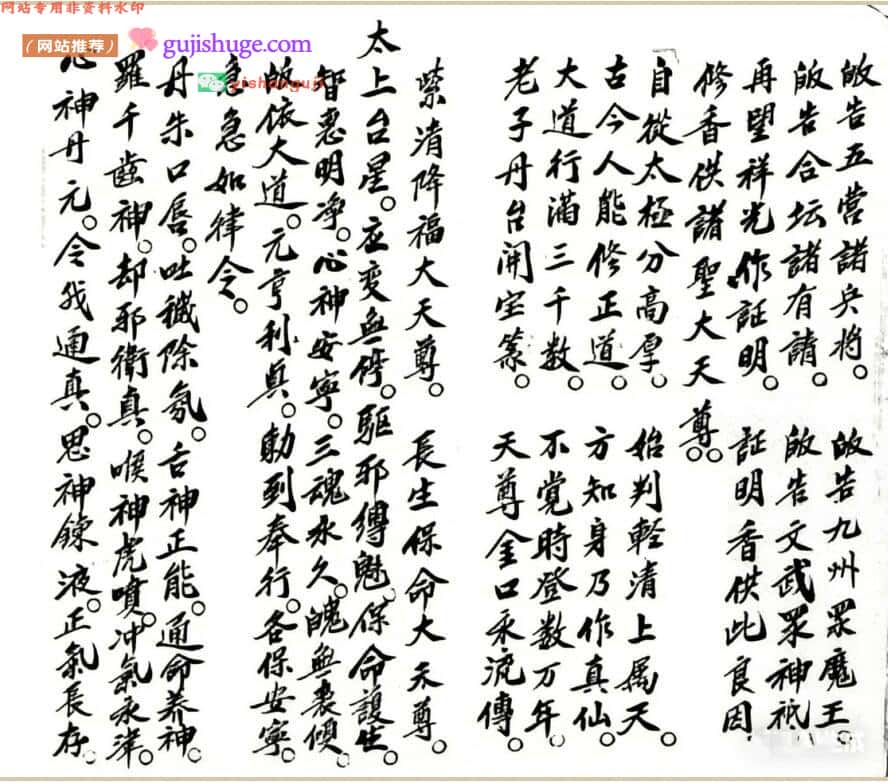 网站专用非资料水印
（网站推荐） gujishuge.com
yishanguji
皈告五营諸兵將。皈告九州眾魔王。
皈告合坛諸有請。皈告文武眾神祇。
再望祥光作証明。証明香供此良因
修香供諸聖大天尊。。
自從太極分高厚。始判輕清上属天。
古今人能修正道。方知身乃作真仙。
大道行滿三千数。不覚時登数万年。
老子丹台開宝篆。天尊金口永流傳。
紫清降福大天尊。長生保命大天尊。
太上台星。应变無停。驅邪縛魅。保命護生。
智惠明净。心神安寧。三魂永久。魄無丧傾。
皈依大道。元亨利貞。勅到奉行。各保安寧。
急急如律令。
丹朱口唇。吐穢除氛。舌神正能。通命养神。
羅千齒神。却邪衛真。喉神虎噴。冲氣永津。
心神丹元。令我通真。思神鍊液。正氣長存。